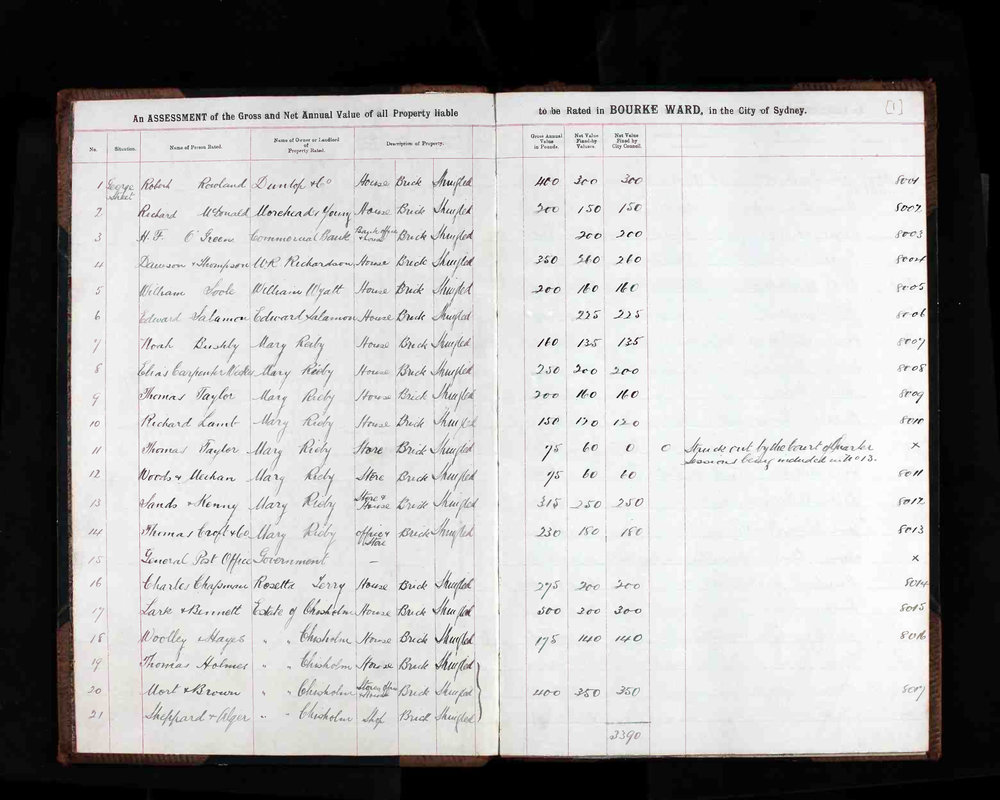 An ASSESSMENT of the Gross and Net Annual Value of all Property liable to be Rated in BOURKE WARD, in the City of Sydney. [1]
No. Situation. Name of Person Rated. Name of Owner or Landlord of Property Rated. Description of Property. Gross Annual Value in Pounds. Net Value Fixed by Valuers. Net Value Fixed by City Council.
1 George Street Robert Rowland Dunlop & Co House Brick Shingled 400 300 300 8001
2 Richard McDonald Moreheads Young House Brick Shingled 200 150 150 8002
3 H. F. O'Greene Commercial Bank Bank office & House Brick Shingled 200 200 8003
4 Dawson & Thompson W R Richardson House Brick Shingled 350 260 260 8004
5 William Toole William Wyatt House Brick Shingled 200 160 160 8005
6 Edward Salamon Edward Salamon House Brick Shingled 225 225 8006
7 Noah Bushby Mary Reiby House Brick Shingled 160 135 135 8007
8 Elias Carpenter Weekes Mary Reiby House Brick Shingled 250 200 200 8008
9 Thomas Taylor Mary Reiby House Brick Shingled 200 160 160 8009
10 Richard Lamb Mary Reiby House Brick Shingled 150 120 120 8010
11 Thomas Taylor Mary Reiby Store Brick Shingled 75 60 0 0 Struck out by the Court of Quarter Sessions being included in No 13. x
12 Woods & Meehan Mary Reiby Store Brick Shingled 75 60 60 8011
13 Sands & Kenny Mary Reiby Store & House Brick Shingled 315 250 250 8012
14 Thomas Croft & Co Mary Reiby office & Store Brick Shingled 230 180 180 8013
15 General Post Office Government — x
16 Charles Chapman Rosetta Terry House Brick Shingled 275 200 200 8014
17 Lark & Bennett Estate of Chisholm House Brick Shingled 500 300 300 8015
18 Woolley & Hayes " " Chisholm House Brick Shingled 175 140 140 8016
19 Thomas Holmes " " Chisholm House Brick Shingled
20 Mort & Brown " " Chisholm Brick Shingled 400 350 350 8017
21 Sheppard & Alger " " Chisholm Shop Brick Shingled
3390